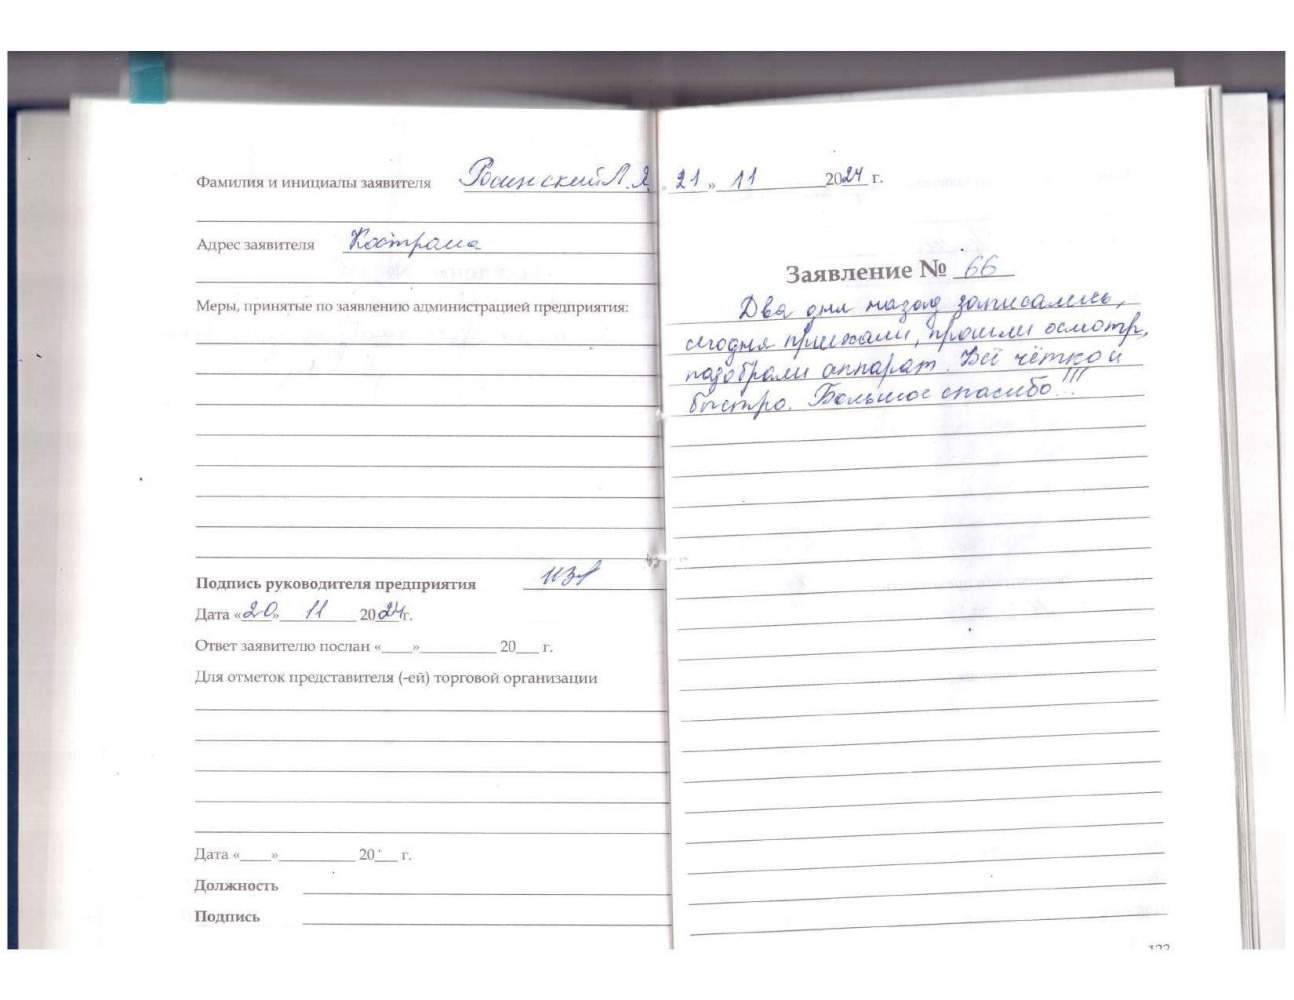 Фамилия и инициалы заявителя Л. Я.
Адрес заявителя Кострома
Меры, принятые по заявлению администрацией предприятия:
Подпись руководителя предприятия
Дата «20» 11 2024 г.
Ответ заявителю послан «____»__________ 20___ г.
Для отметок представителя (-ей) торговой организации
Дата «____»__________ 20___ г.
Должность
Подпись
«21» 11 2024 г.
Заявление № 66
Два дня назад записались,
сегодня приехали, прошли осмотр,
подобрали аппарат. Всё чётко и
быстро. Большое спасибо!!!